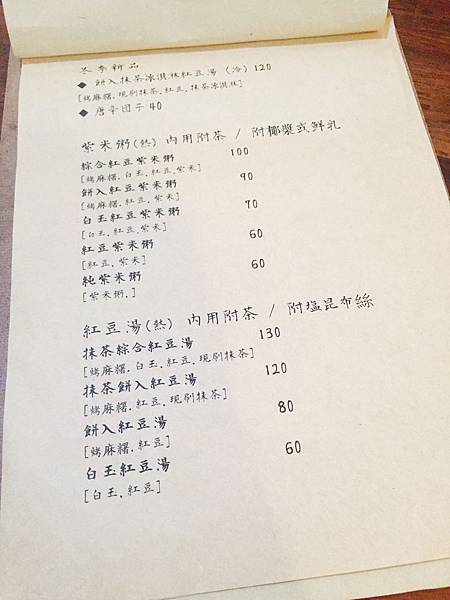 冬季新品
◆ 餅入抹茶冰淇淋紅豆湯 (冷) 120
[烤麻糬.現刷抹茶.紅豆.抹茶冰淇淋]
◆ 唐辛団子 40
紫米粥(熱) 內用附茶 / 附椰漿或鮮乳
綜合紅豆紫米粥 100
[烤麻糬.白玉.紅豆.紫米]
餅入紅豆紫米粥 90
[烤麻糬.紅豆.紫米]
白玉紅豆紫米粥 70
[白玉.紅豆.紫米]
紅豆紫米粥 60
[紅豆.紫米]
純紫米粥 60
[紫米粥.]
紅豆湯(熱) 內用附茶 / 附塩昆布絲
抹茶綜合紅豆湯 130
[烤麻糬.白玉.紅豆.現刷抹茶]
抹茶餅入紅豆湯 120
[烤麻糬.紅豆.現刷抹茶]
餅入紅豆湯 80
[烤麻糬.紅豆]
白玉紅豆湯 60
[白玉.紅豆]